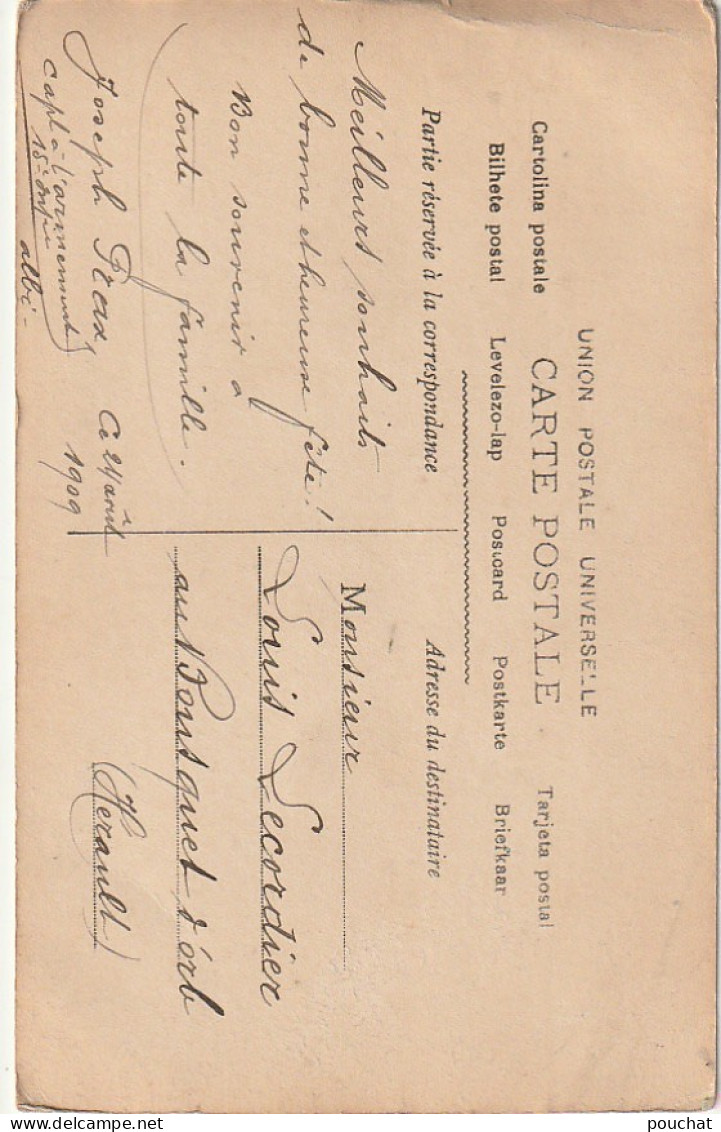 UNION POSTALE UNIVERSELLE
CARTE POSTALE
Cartolina postale
Tarjeta postal
Bilhete postal Levelezo-lap Postcard Postkarte Briefkaar
Partie réservée à la correspondance
Adresse du destinataire
Meilleurs souhaits
de bonne et heureuse fête!
Bon souvenir à
toute la famille.
Joseph
Ce 24 août
1909
capl à l'armement
15e
albi-
Monsieur
Louis Lecordier
au Bousquet d'orb
(Herault)
pouchat